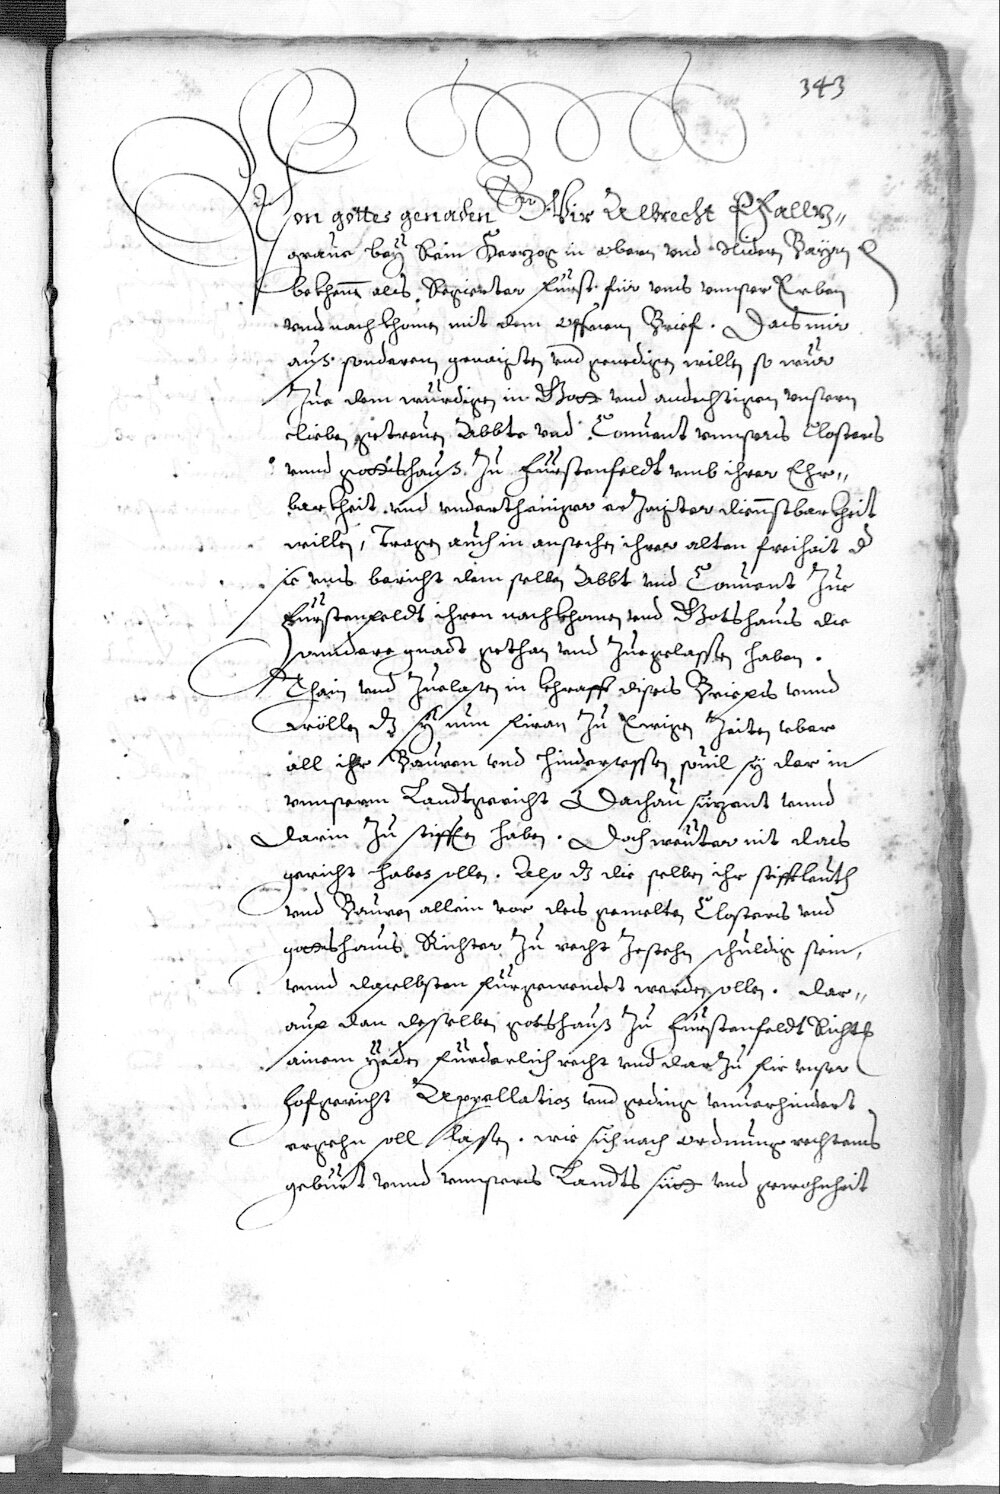 343
Von gottes genaden Wir Albrecht Pfallz„
graue bey Rein Herzog in Obern vnd Nidern Bayrn
bekhenn als Regierter Fürst für vns vnnser Erben
vnd nachkhomen mit dem offnem Brief. Das mir
aus sonderem genaigten vnd genedigen willen so wür
Zue dem würdigen in Gott vnd andechtigen vnsern
lieben getreuen Abbte vnd Conuent vnnsers Closters
vnnd gottshauß Zu Fürstenfeldt vmb ihrer Ehr„
barkheit vnd vnderthäniger erZaigter diennstbarkheit
willen, Tragen auch in ansechen ihrer alten freiheit d
sie vns bericht dem selben Abbt vnd Conuent Zue
Fürstenfeldt ihren nachkhomen vnd Gotshaus die
sondere gnadt gethan vnd Zuegelassen haben.
Thain vnd Zuelasen in khrafft dises Briefes vnnd
wöllen dz sy nun firan Zu Ewigen Zeiten vber
all ihr Bauren vnd hindersessen souil sy der in
vnnserm Landtgericht Dachau sizent vnnd
darin Zu stifften haben. Doch weiter nit dals
gericht haben sollen. Also dz die selben ihr stifftleuth
vnd Bauren allein vor des gemelten Closters vnd
gottshaus Richter Zu recht Zestehn schuldig sein,
vnnd daselbsten fürgewendet werden sollen. dar„
auf dan desselben gotshauß Zu Fürstenfeldt Richter
ainem yeden fürderlich recht vnd darZu fir vnser
hofgericht Appellation vnd geding vnuerhindert
ergehn soll lassen. wie sich nach ordnung rechtens
gebürt vnnd vnnsers Landts sitt vnd gewohnheit